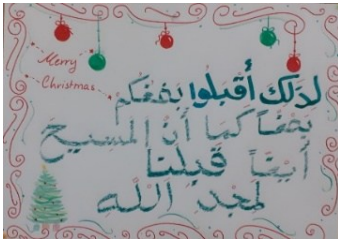 Merry
Christmas
لذلك أقبلوا بعضكم
بعضاً كما أن المسيح
أيضاً قبلنا
لمجد الله